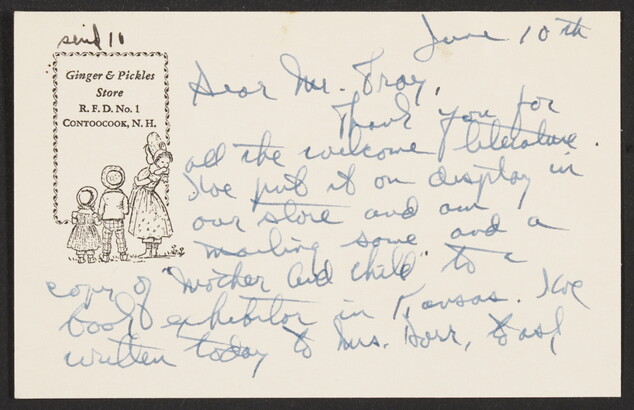 send 11
Ginger & Pickles
Store
R. F. D. No. 1
CONTOOCOOK, N. H.
June 10th
Dear Mr. Tray,
Thank you for
all the welcome literature.
I've put it on display in
our store and am
mailing some and a
copy of "Mother and Child" to a
book exhibitor in Kansas. I've
written today to Mrs. Dorr, to ask